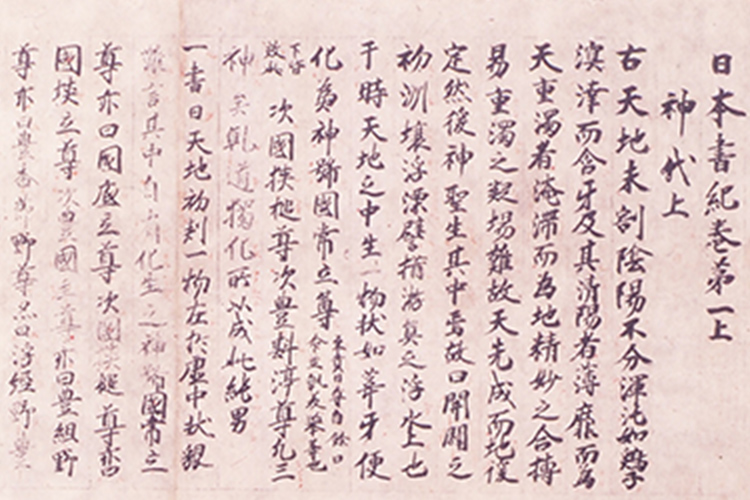 日本書紀巻第一上
神代上
古天地未剖陰陽不分渾沌如鶏子
溟涬而含牙及其清陽者薄靡而為
天重濁者淹滞而為地精妙之合搏
易重濁之凝場難故天先成而地後
定然後神聖生其中焉故曰開闢之
初洲壌浮漂譬猶游魚之浮水上也
于時天地之中生一物状如葦牙便
化為神号国常立尊
次国狭槌尊次豊斟渟尊凡三
神矣乾道獨化所以成此純男
一書曰天地初判一物在於虚中状貌
難言其中自有化生之神号國常立
尊亦曰國底立尊次國狭槌尊亦曰
國狭立尊次豊國主尊亦曰豊組野
尊亦曰豊香節野尊亦曰浮経野豊